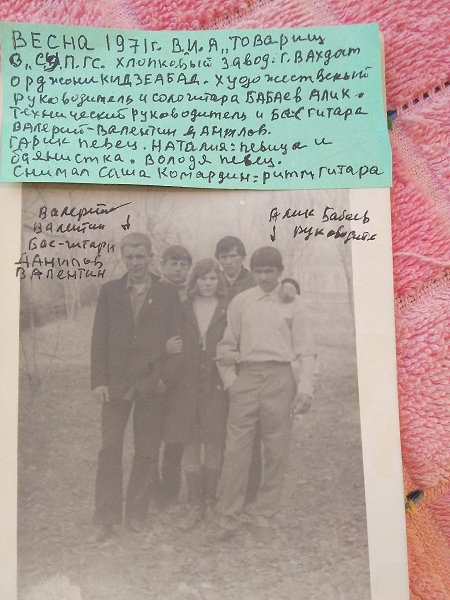 ВЕСНА 1971г. В.И.А „ТОВАРИЩ
П.ГС. ХЛОПКЕВЫЙ ЗАВОД: Г. ВАХДАТ
ОРДЖОНИКИДЗЕАБАД. ХУДОЖЕСТВЕНЫЙ
РУКОВОДИТЕЛЬ И СОЛОГИТАРА БАБАЕВ АЛИК.
ТЕХНИЧЕСКИЙ РУКОВОДИТЕЛЬ И БАС ГИТАРА
ВАЛЕРИЙ-ВАЛЕНТИН ДАНИЛОВ.
ГАРИК ПЕВЕЦ. НАТАЛИЯ: ПЕВИЦА И
ВОЛОДЯ ПЕВЕЦ.
СНИМАЛ САША КОМАРДИН = РИТМ ГИТАРА
ВАЛЕРИЙ
ВАЛЕНТИН
БАС-ГИТАРЫ
ДАНИЛОВ
ВАЛЕНТИН
АЛИК БАБАЕВ